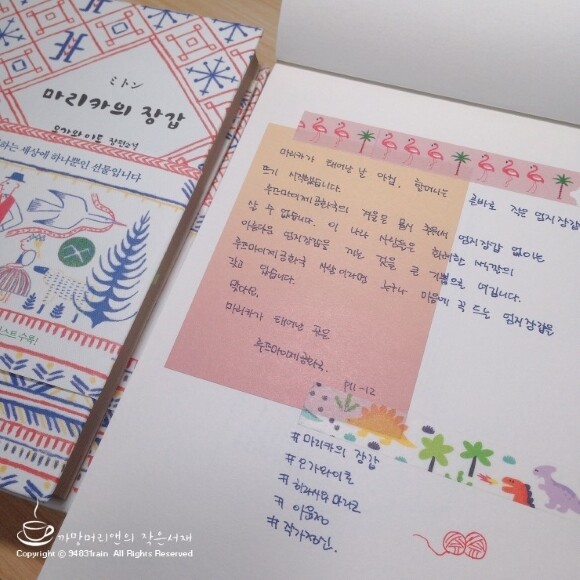 ミトン
마리카의 장갑
오가와 이토 장편소설
하는 세상에 하나뿐인 선물입니다
스트 수록!
마리카가 태어난 날 아침, 할머니는 곧바로 작은 엄지장갑
뜨기 시작했습니다.
루프마이제공화국의 겨울은 몹시 추워서 엄지장갑 없이는
살 수 없습니다. 이 나라 사람들은 화려한 색깔의
아름다운 엄지장갑을 끼는 것을 큰 기쁨으로 여깁니다.
루프마이제공화국 사람이라면 누구나 마음에 꼭 드는 엄지장갑을
갖고 있습니다.
맞아요,
마리카가 태어난 곳은
루프마이제공화국.
P11-12
#마리카의 장갑
#오가와이토
#히라사와마리코
#이윤정
#작가정신.
까망머리앤의 작은서재
Copyright © 94831rain All Rights Reserved